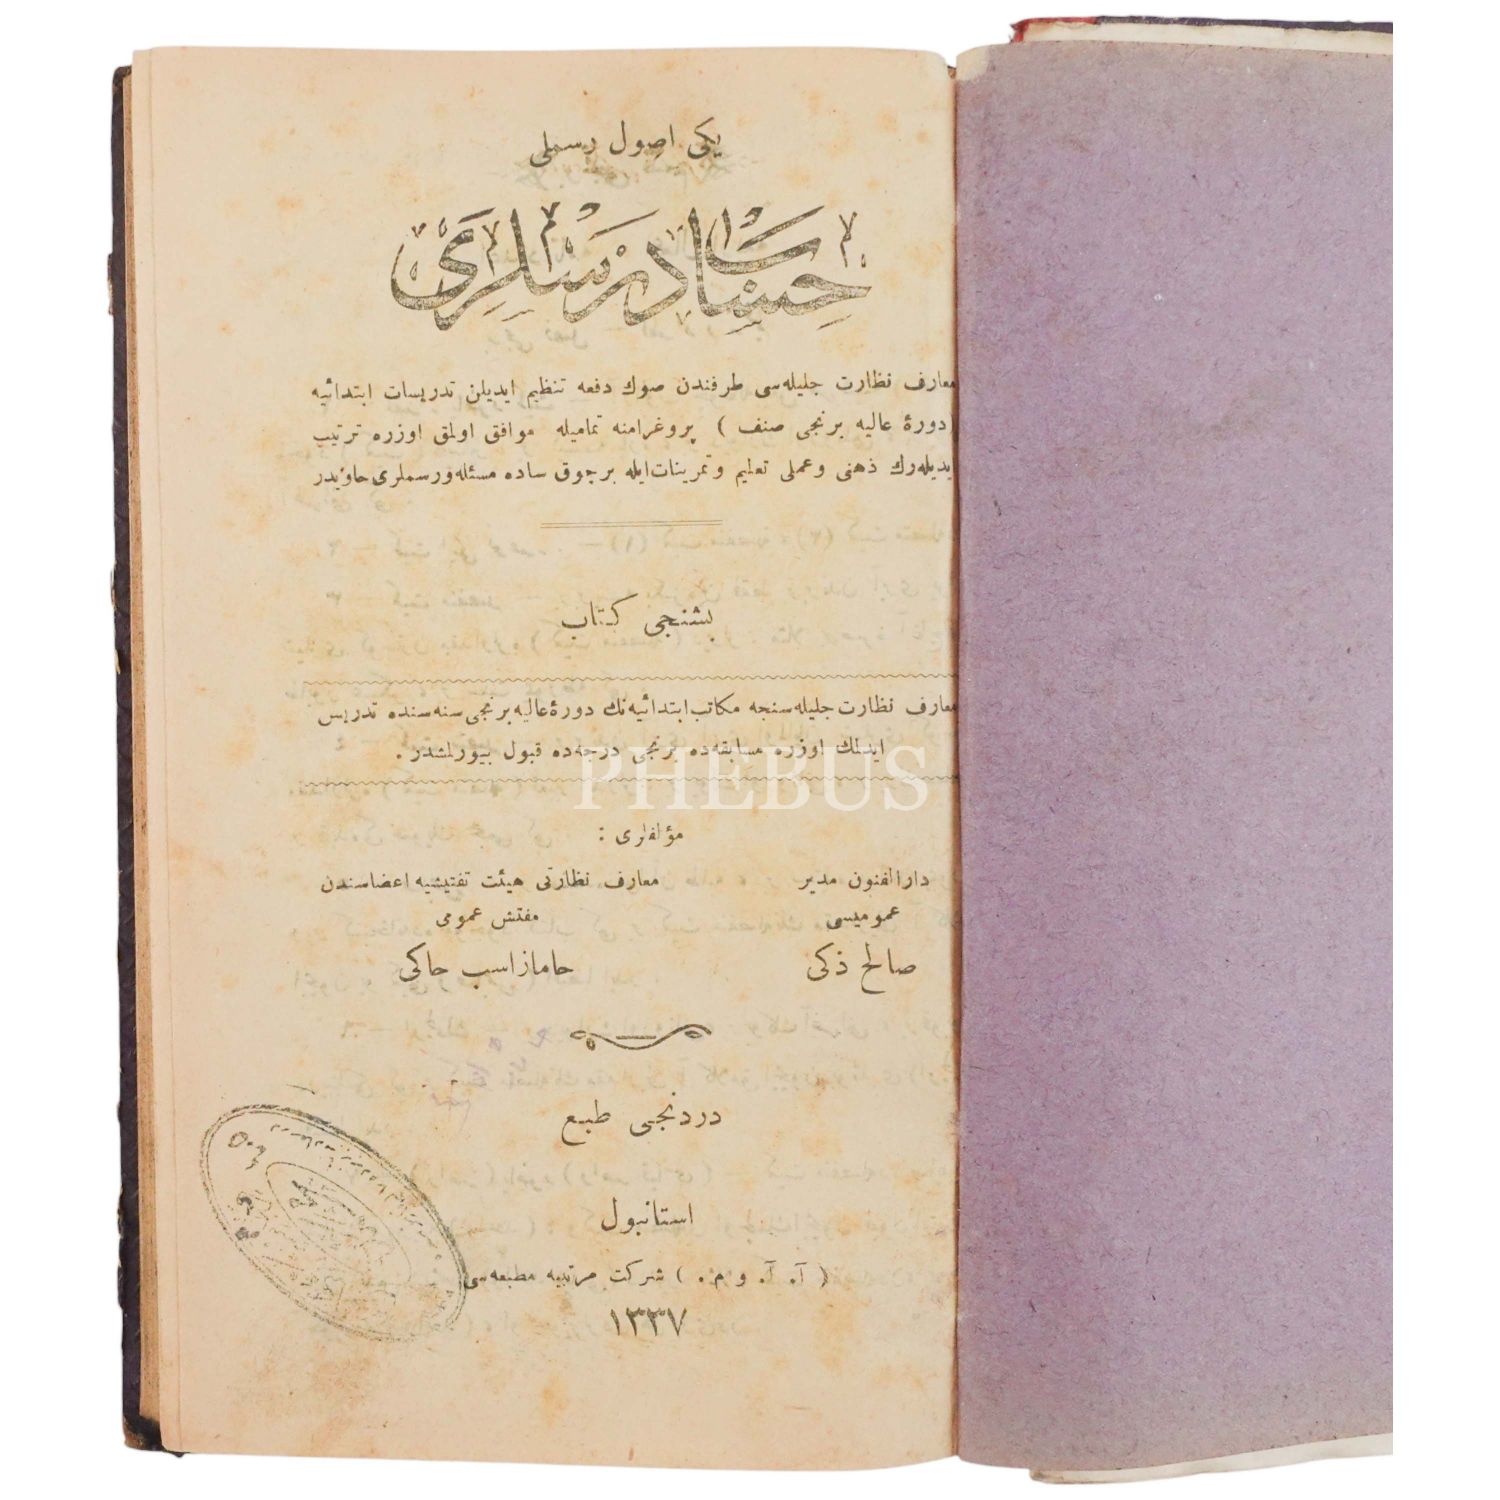 یکی اصول رسملی
حساب درسلری
معارف نظارت جلیله‌سی طرفندن صوك دفعه تنظیم ایدیلن تدریسات ابتدائیه
(دورهٔ عالیه برنجی صنف) پروغرامنه تمامیله موافق اولمق اوزره ترتیب
ایدیله‌رك ذهنی وعملی تعلیم وتمرینات ایله برچوق ساده مسئله ورسملری حاویدر
بشنجی کتاب
معارف نظارت جلیله‌سنجه مکاتب ابتدائیه‌نك دورهٔ عالیه برنجی سنه‌سنده تدریس
ایدلمك اوزره مسابقه‌ده برنجی درجه‌ده قبول بیورلمشدر.
PHEBUS
مؤلفلری :
دارالفنون مدیر
عمومیسی
صالح ذکی
معارف نظارتی هیئت تفتیشیه اعضاسندن
مفتش عمومی
حامازاسب حاکی
دردنجی طبع
استانبول
( آ. آ. و م. ) شرکت مرتبیه مطبعه‌سی
١٣٣٧